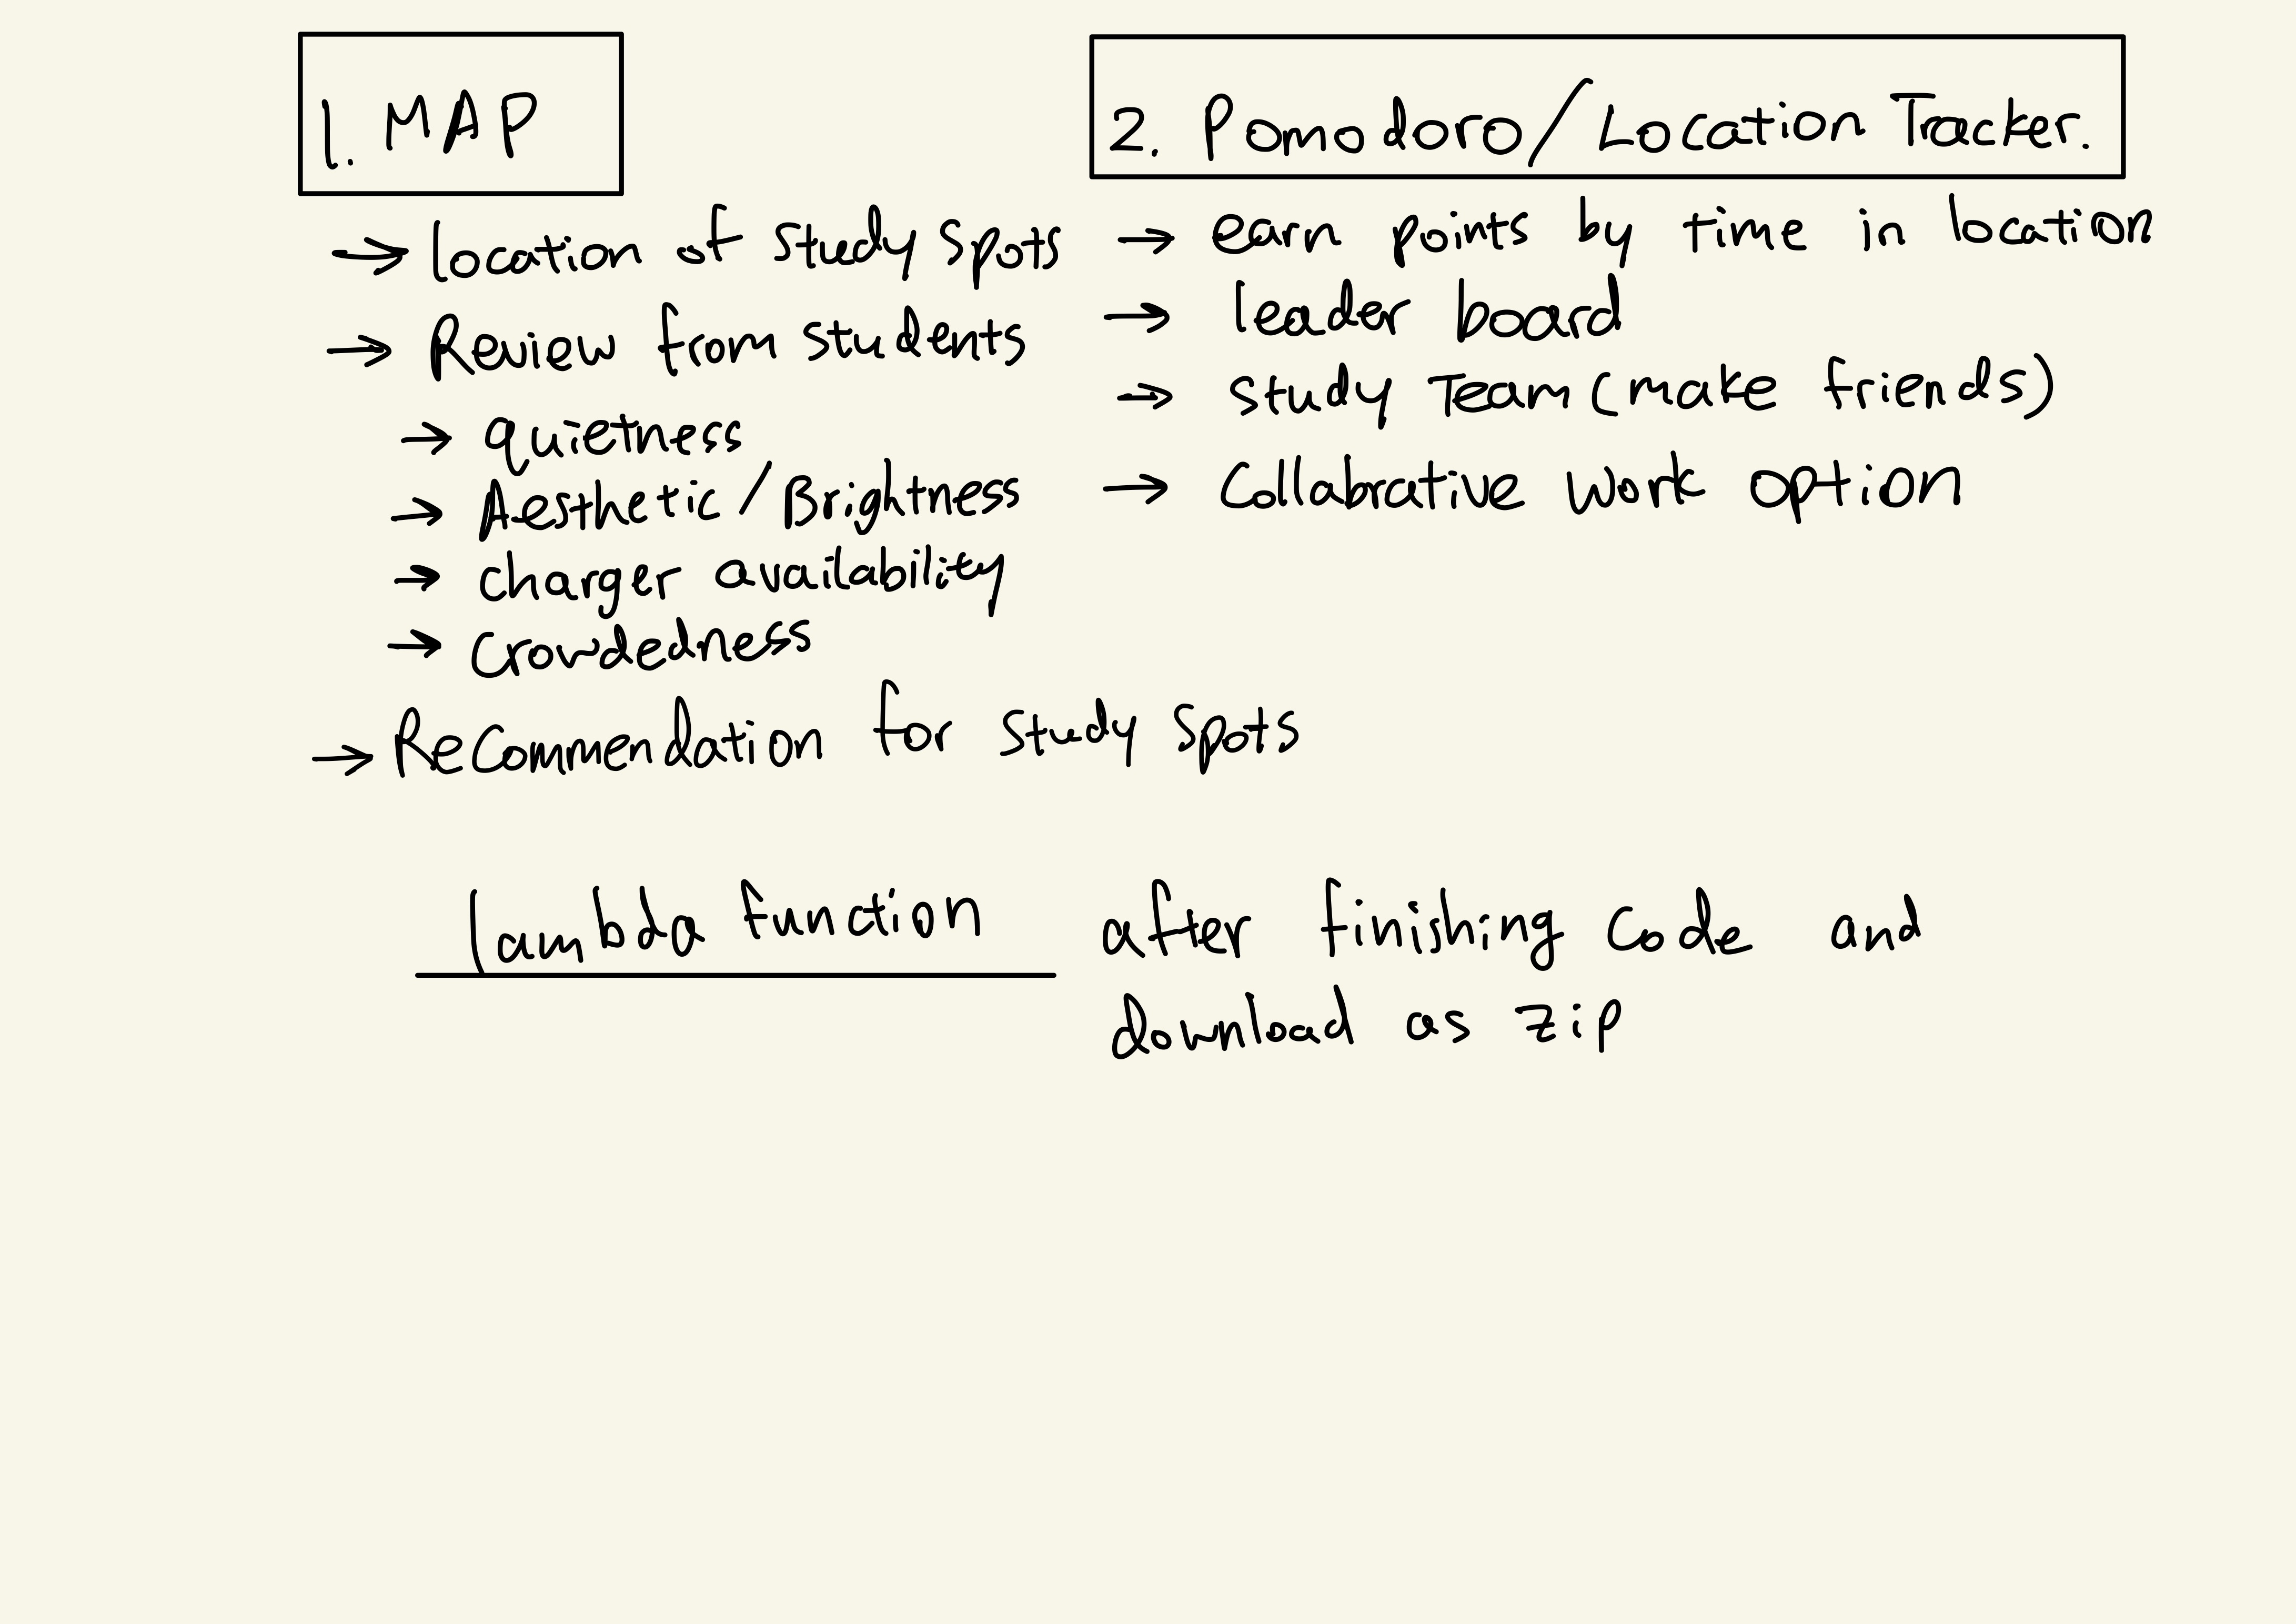 1. MAP
→ location of study spots
→ Review from students
→ quietness
→ Aesthetic / Brightness
→ charger availability
→ crowdedness
→ Recommendation for study spots
2. Pomodoro/Location Tracker.
→ earn points by time in location
→ leader board
→ study Team (make friends)
→ Collabrative work option
lambda function after finishing code and
download as zip